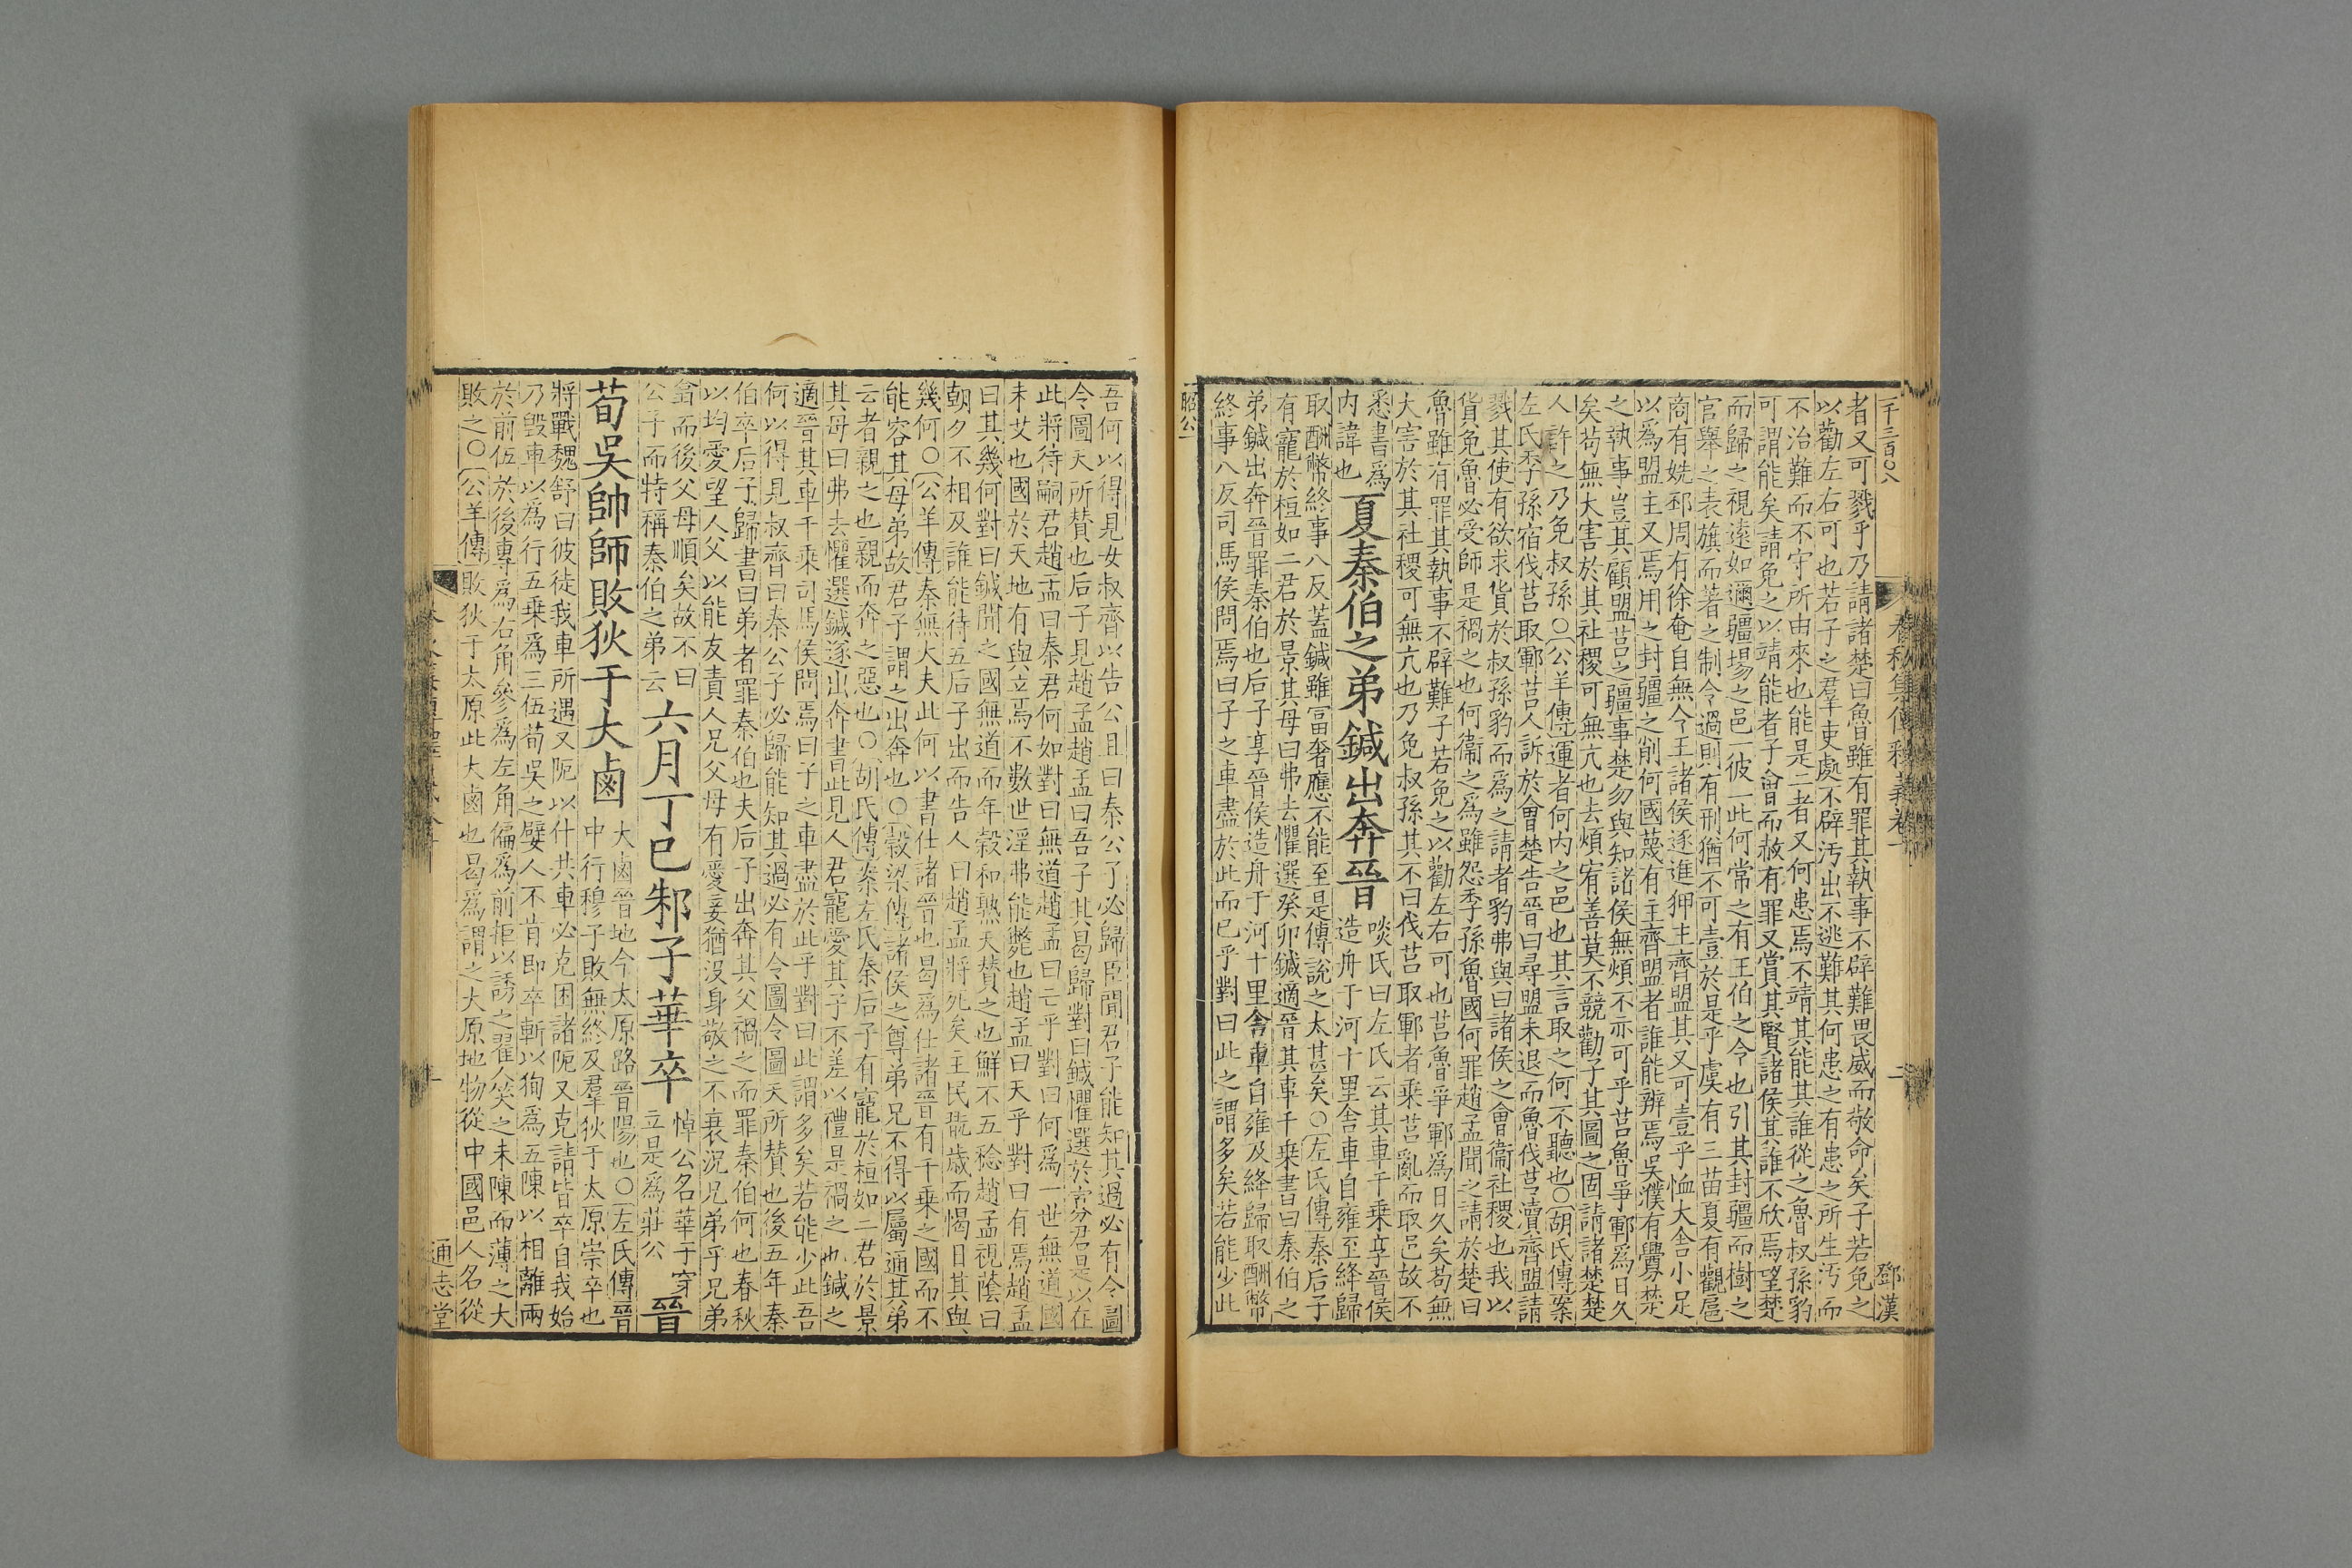 一千三百〇八
鄧漢
者又可戮乎乃請諸楚曰魯雖有罪其執事不辟難畏威而敬命矣子若免之
以勸左右可也若子之羣吏處不辟汚出不逃難其何患之有患之所生汚而
不治難而不守所由來也能是二者又何患焉不靖其能其誰從之魯叔孫豹
可謂能矣請免之以靖能者子會而赦有罪又賞其賢諸侯其誰不欣焉望楚
而歸之視遠如邇疆場之邑一彼一此何常之有王伯之令也引其封疆而樹之
官舉之表旗而著之制令過則有刑猶不可壹於是乎虞有三苗夏有觀扈
商有姺邳周有徐奄自無令王諸侯逐進狎主齊盟其又可壹乎恤大舍小足
以爲盟主又焉用之封疆之削何國蔑有主齊盟者誰能辨焉吳濮有釁楚
之執事豈其顧盟莒之疆事楚勿與知諸侯無煩不亦可乎莒魯爭鄆爲日久
矣苟無大害於其社稷可無亢也去煩宥善莫不競勸子其圖之固請諸楚楚
人許之乃免叔孫〇公羊傳運者何內之邑也其言取之何不聽也〇胡氏傳案
左氏季孫宿伐莒取鄆莒人訴於會楚告晉曰尋盟未退而魯伐莒瀆齊盟請
戮其使有欲求貨於叔孫豹而爲之請者豹弗與曰諸侯之會衞社稷也我以
貨免魯必受師是禍之也何衞之爲雖怨季孫魯國何罪趙孟聞之請於楚曰
魯雖有罪其執事不辟難子若免之以勸左右可也莒魯爭鄆爲日久矣苟無
大害於其社稷可無亢也乃免叔孫其不曰伐莒取鄆者乘莒亂而取邑故不
悉書爲
內諱也
夏秦伯之弟鍼出奔晉
啖氏曰左氏云其車千乘享晉侯
造舟于河十里舍車自雍至絳歸
取酬幣終事八反蓋鍼雖富奢應不能至是傳說之太甚矣〇左氏傳秦后子
有寵於桓如二君於景其母曰弗去懼選癸卯鍼適晉其車千乘書曰秦伯之
弟鍼出奔晉罪秦伯也后子享晉侯造舟于河十里舍車自雍及絳歸取酬幣
終事八反司馬侯問焉曰子之車盡於此而已乎對曰此之謂多矣若能少此
昭公一
吾何以得見女叔齊以告公且曰秦公子必歸臣聞君子能知其過必有令圖
令圖天所贊也后子見趙孟趙孟曰吾子其曷歸對曰鍼懼選於寡君是以在
此將待嗣君趙孟曰秦君何如對曰無道趙孟曰亡乎對曰何爲一世無道國
未艾也國於天地有與立焉不數世淫弗能斃也趙孟曰天乎對曰有焉趙孟
曰其幾何對曰鍼聞之國無道而年穀和熟天贊之也鮮不五稔趙孟視蔭曰
朝夕不相及誰能待五后子出而告人曰趙孟將死矣主民翫歲而愒日其與
幾何〇公羊傳秦無大夫此何以書仕諸晉也曷爲仕諸晉有千乘之國而不
能容其母弟故君子謂之出奔也〇穀梁傳諸侯之尊弟兄不得以屬通其弟
云者親之也親而奔之惡也〇胡氏傳案左氏秦后子有寵於桓如二君於景
其母曰弗去懼選鍼遂出奔書此見人君寵愛其子不差以禮是禍之也鍼之
適晉其車千乘司馬侯問焉曰子之車盡於此乎對曰此謂多矣若能少此吾
何以得見叔齊曰秦公子必歸能知其過必有令圖令圖天所贊也後五年秦
伯卒后子歸書曰弟者罪秦伯也夫后子出奔其父禍之而罪秦伯何也春秋
以均愛望人父以能友責人兄父母有愛妾猶沒身敬之不衰況兄弟乎兄弟
翕而後父母順矣故不曰
公子而特稱秦伯之弟云
六月丁巳邾子華卒
悼公名華子穿
立是爲莊公
晉
荀吳帥師敗狄于大鹵
大鹵晉地今太原路晉陽也〇左氏傳晉
中行穆子敗無終及羣狄于太原崇卒也
將戰魏舒曰彼徒我車所遇又阨以什共車必克困諸阨又克請皆卒自我始
乃毀車以爲行五乘爲三伍荀吳之嬖人不肯即卒斬以狥爲五陳以相離兩
於前伍於後專爲右角參爲左角偏爲前拒以誘之翟人笑之未陳而薄之大
敗之〇公羊傳敗狄于太原此大鹵也曷爲謂之大原地物從中國邑人名從
通志堂